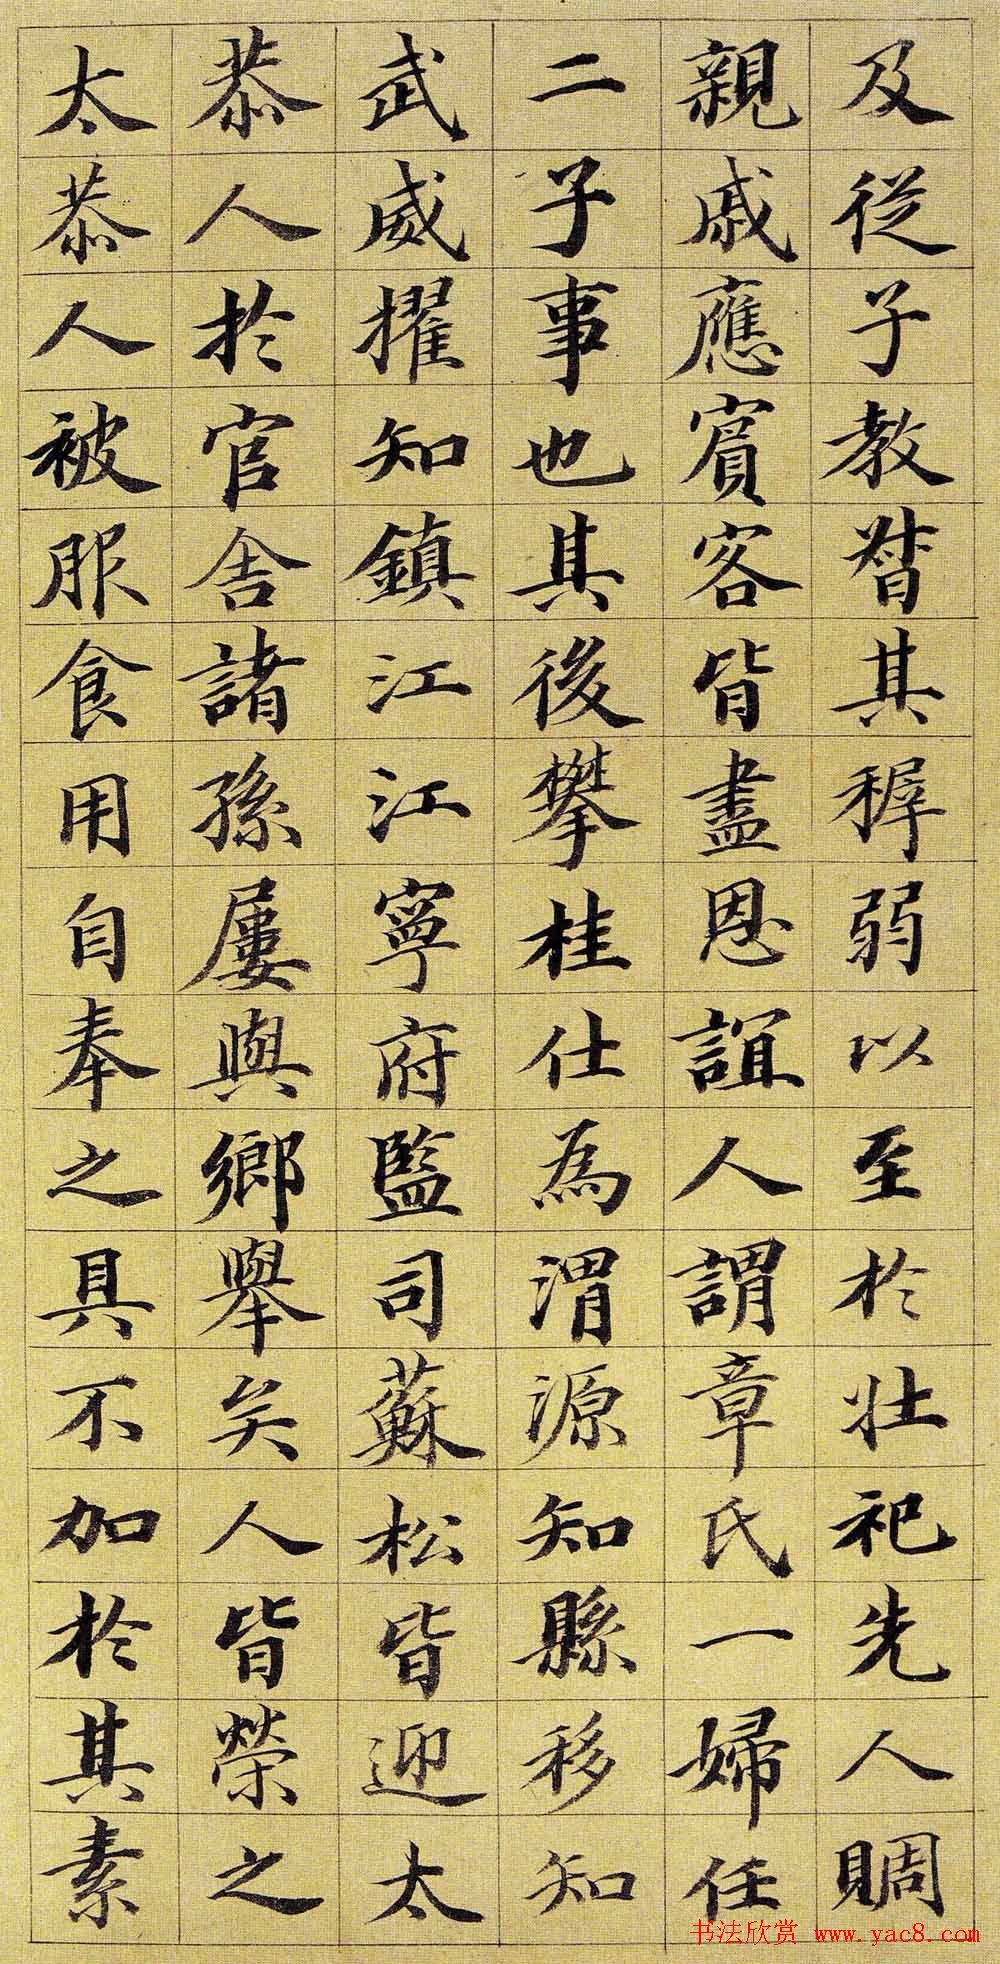 及從子教督其稺弱以至於壯祀先人賙
親戚應賓客皆盡恩誼人謂章氏一婦任
二子事也其後攀桂仕為渭源知縣移知
武威擢知鎮江江寧府監司蘇松皆迎太
恭人於官舍諸孫屢與鄉舉矣人皆榮之
太恭人被服食用自奉之具不加於其素
书法欣赏 www.yac8.com